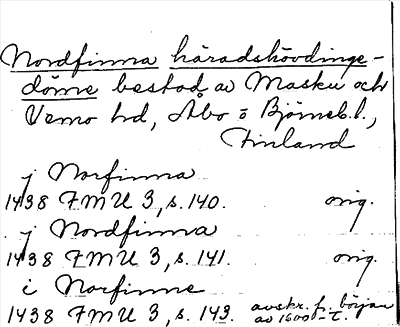 Nordfinna häradshövdinge-
döme bestod av Masku och
Vemo hd, Åbo o Björneb. l.,
Finland
j Norfinna
1438 FMU 3, s. 140. orig.
j Nordfinna
1438 FMU 3, s. 141. orig.
i Norfinne
1438 FMU 3, s. 143. avskr. f. början
av 1600-t.